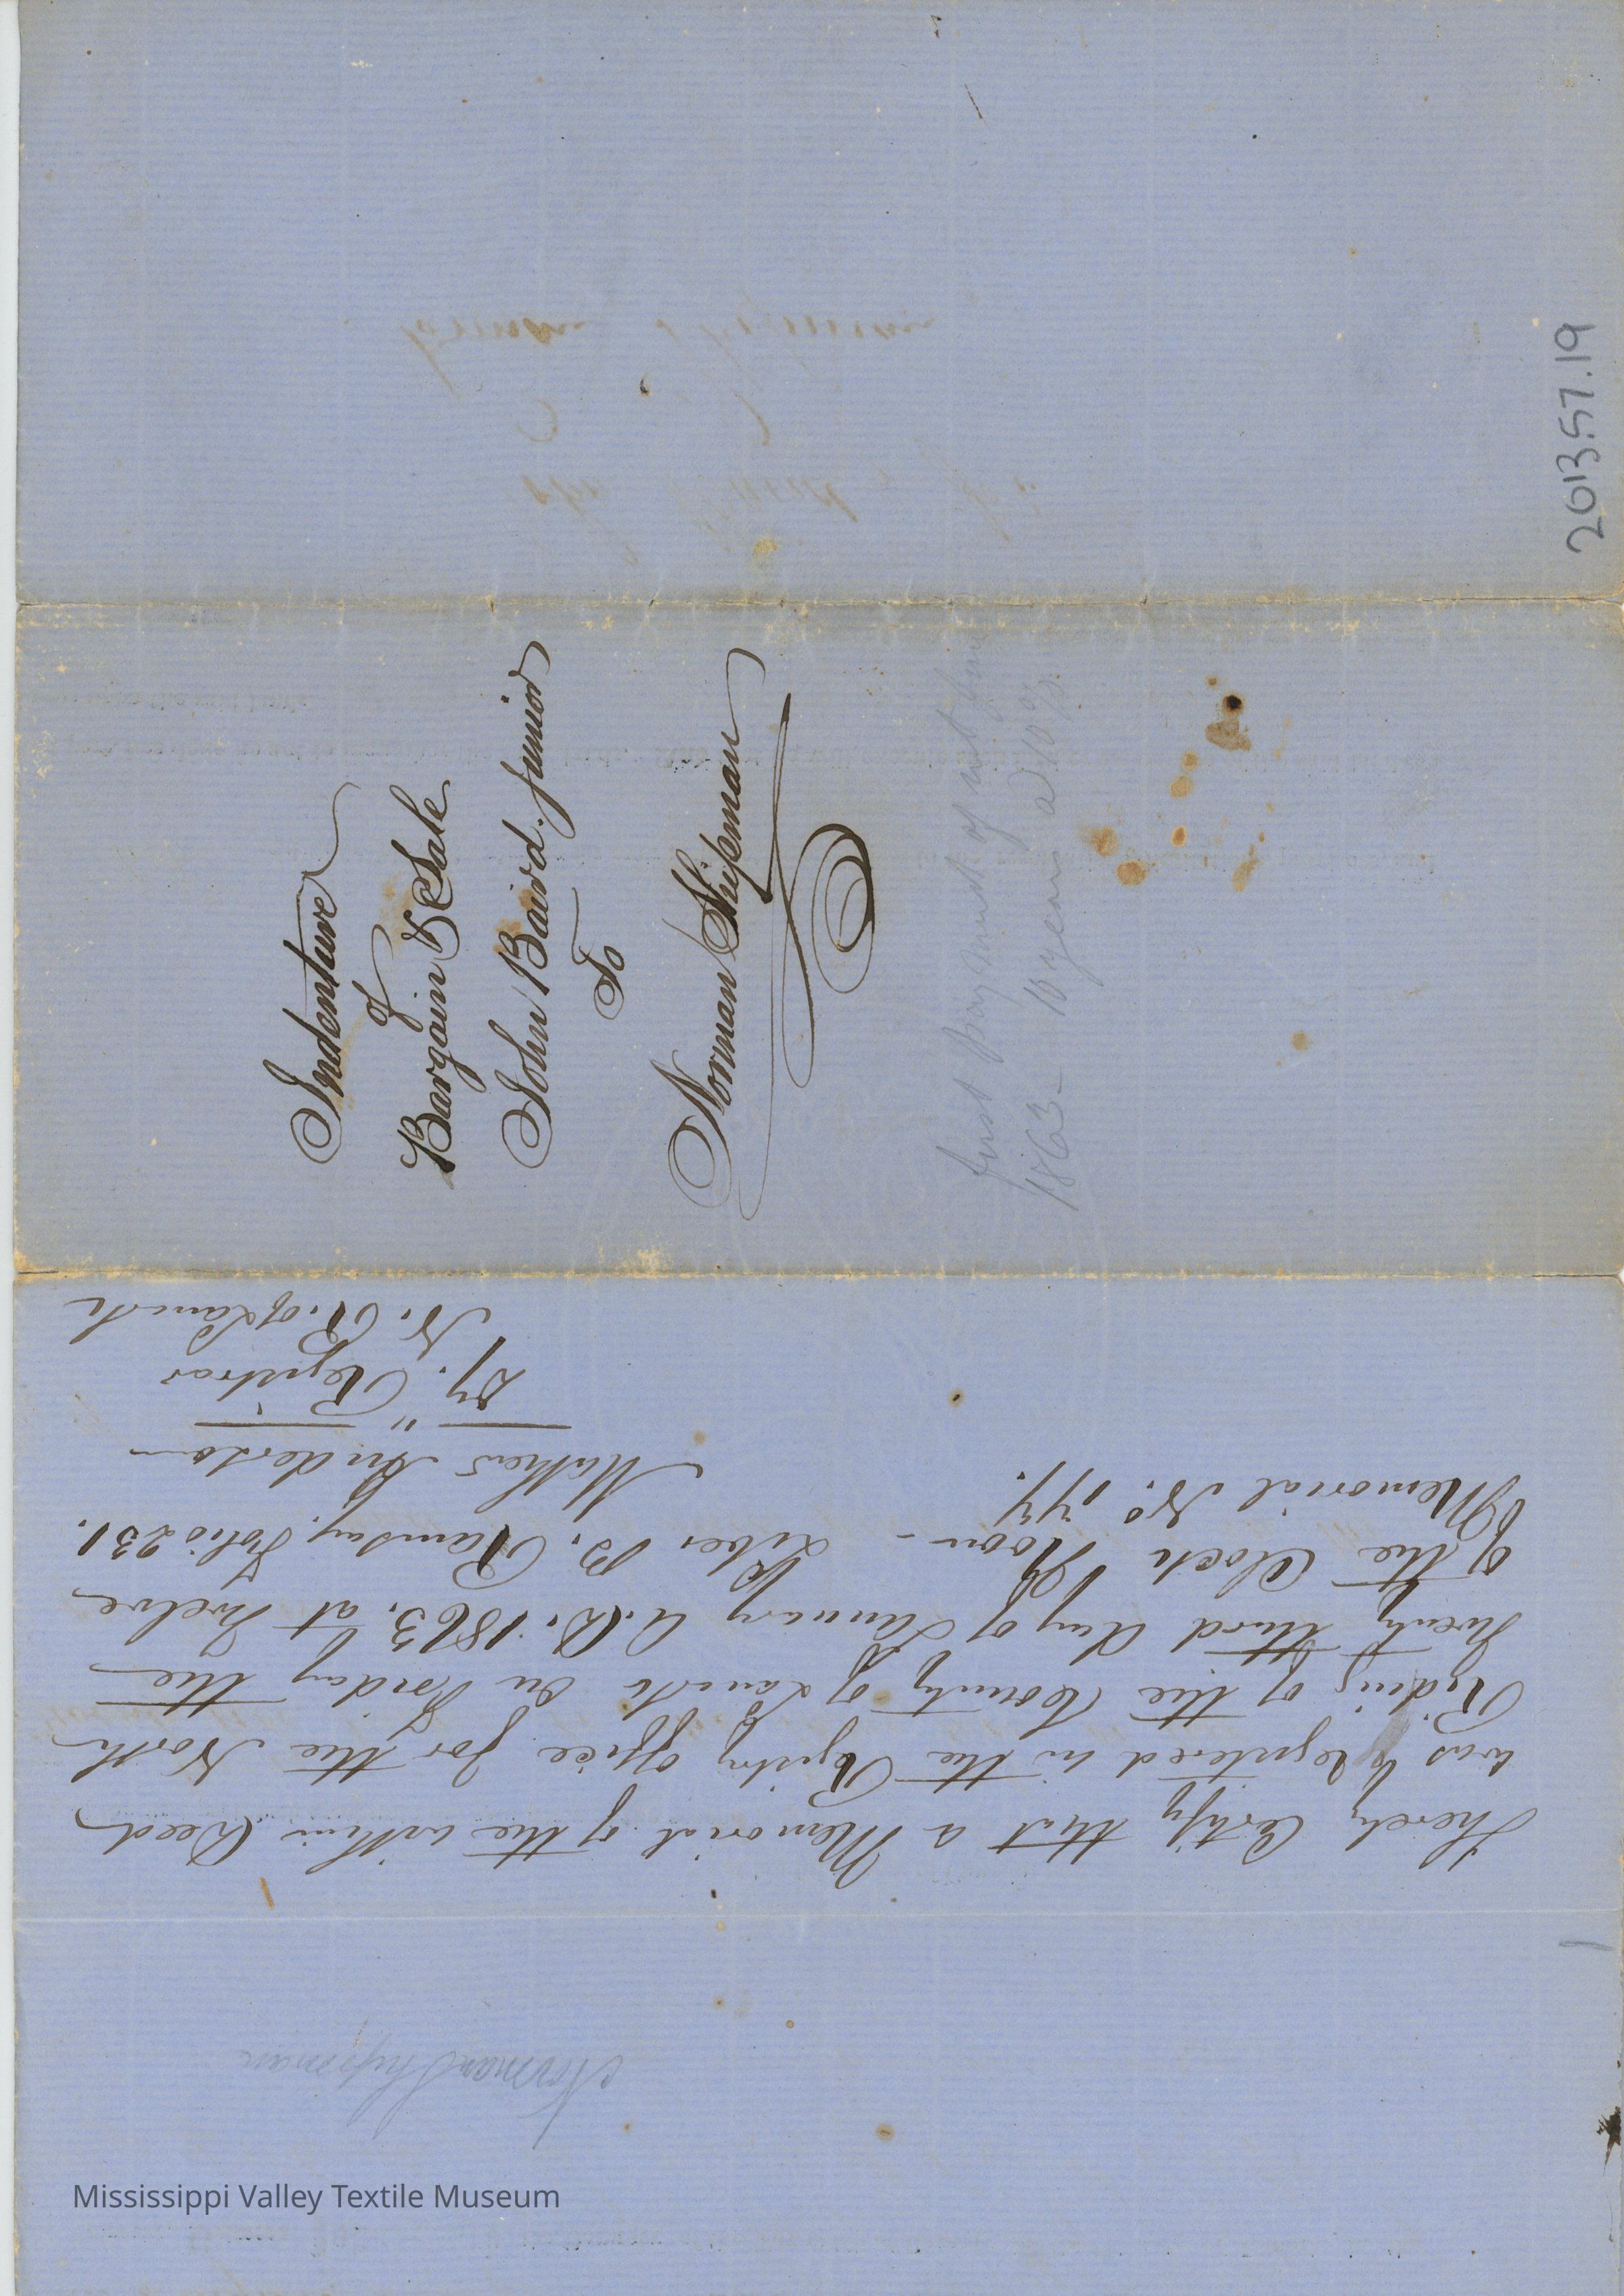 2013.57.19
Indenture
of
Bargain & Sale
John Baird. Junior
To
Norman Shipman
first payment of rent
1863 - 10 years a 10 %
I hereby Certify that a Memorial of the within Deed
was Registered in the Registry office for the North
Riding of the County of Lanark on Friday the
Twenty third day of January A.D. 1863. at Twelve
of the Clock Noon - Liber B. Ramsay, Folio 231.
Memorial No. 174.
Mathew Anderson
Dy. Registrar
N. R. of Lanark
Norman Shipman
Mississippi Valley Textile Museum